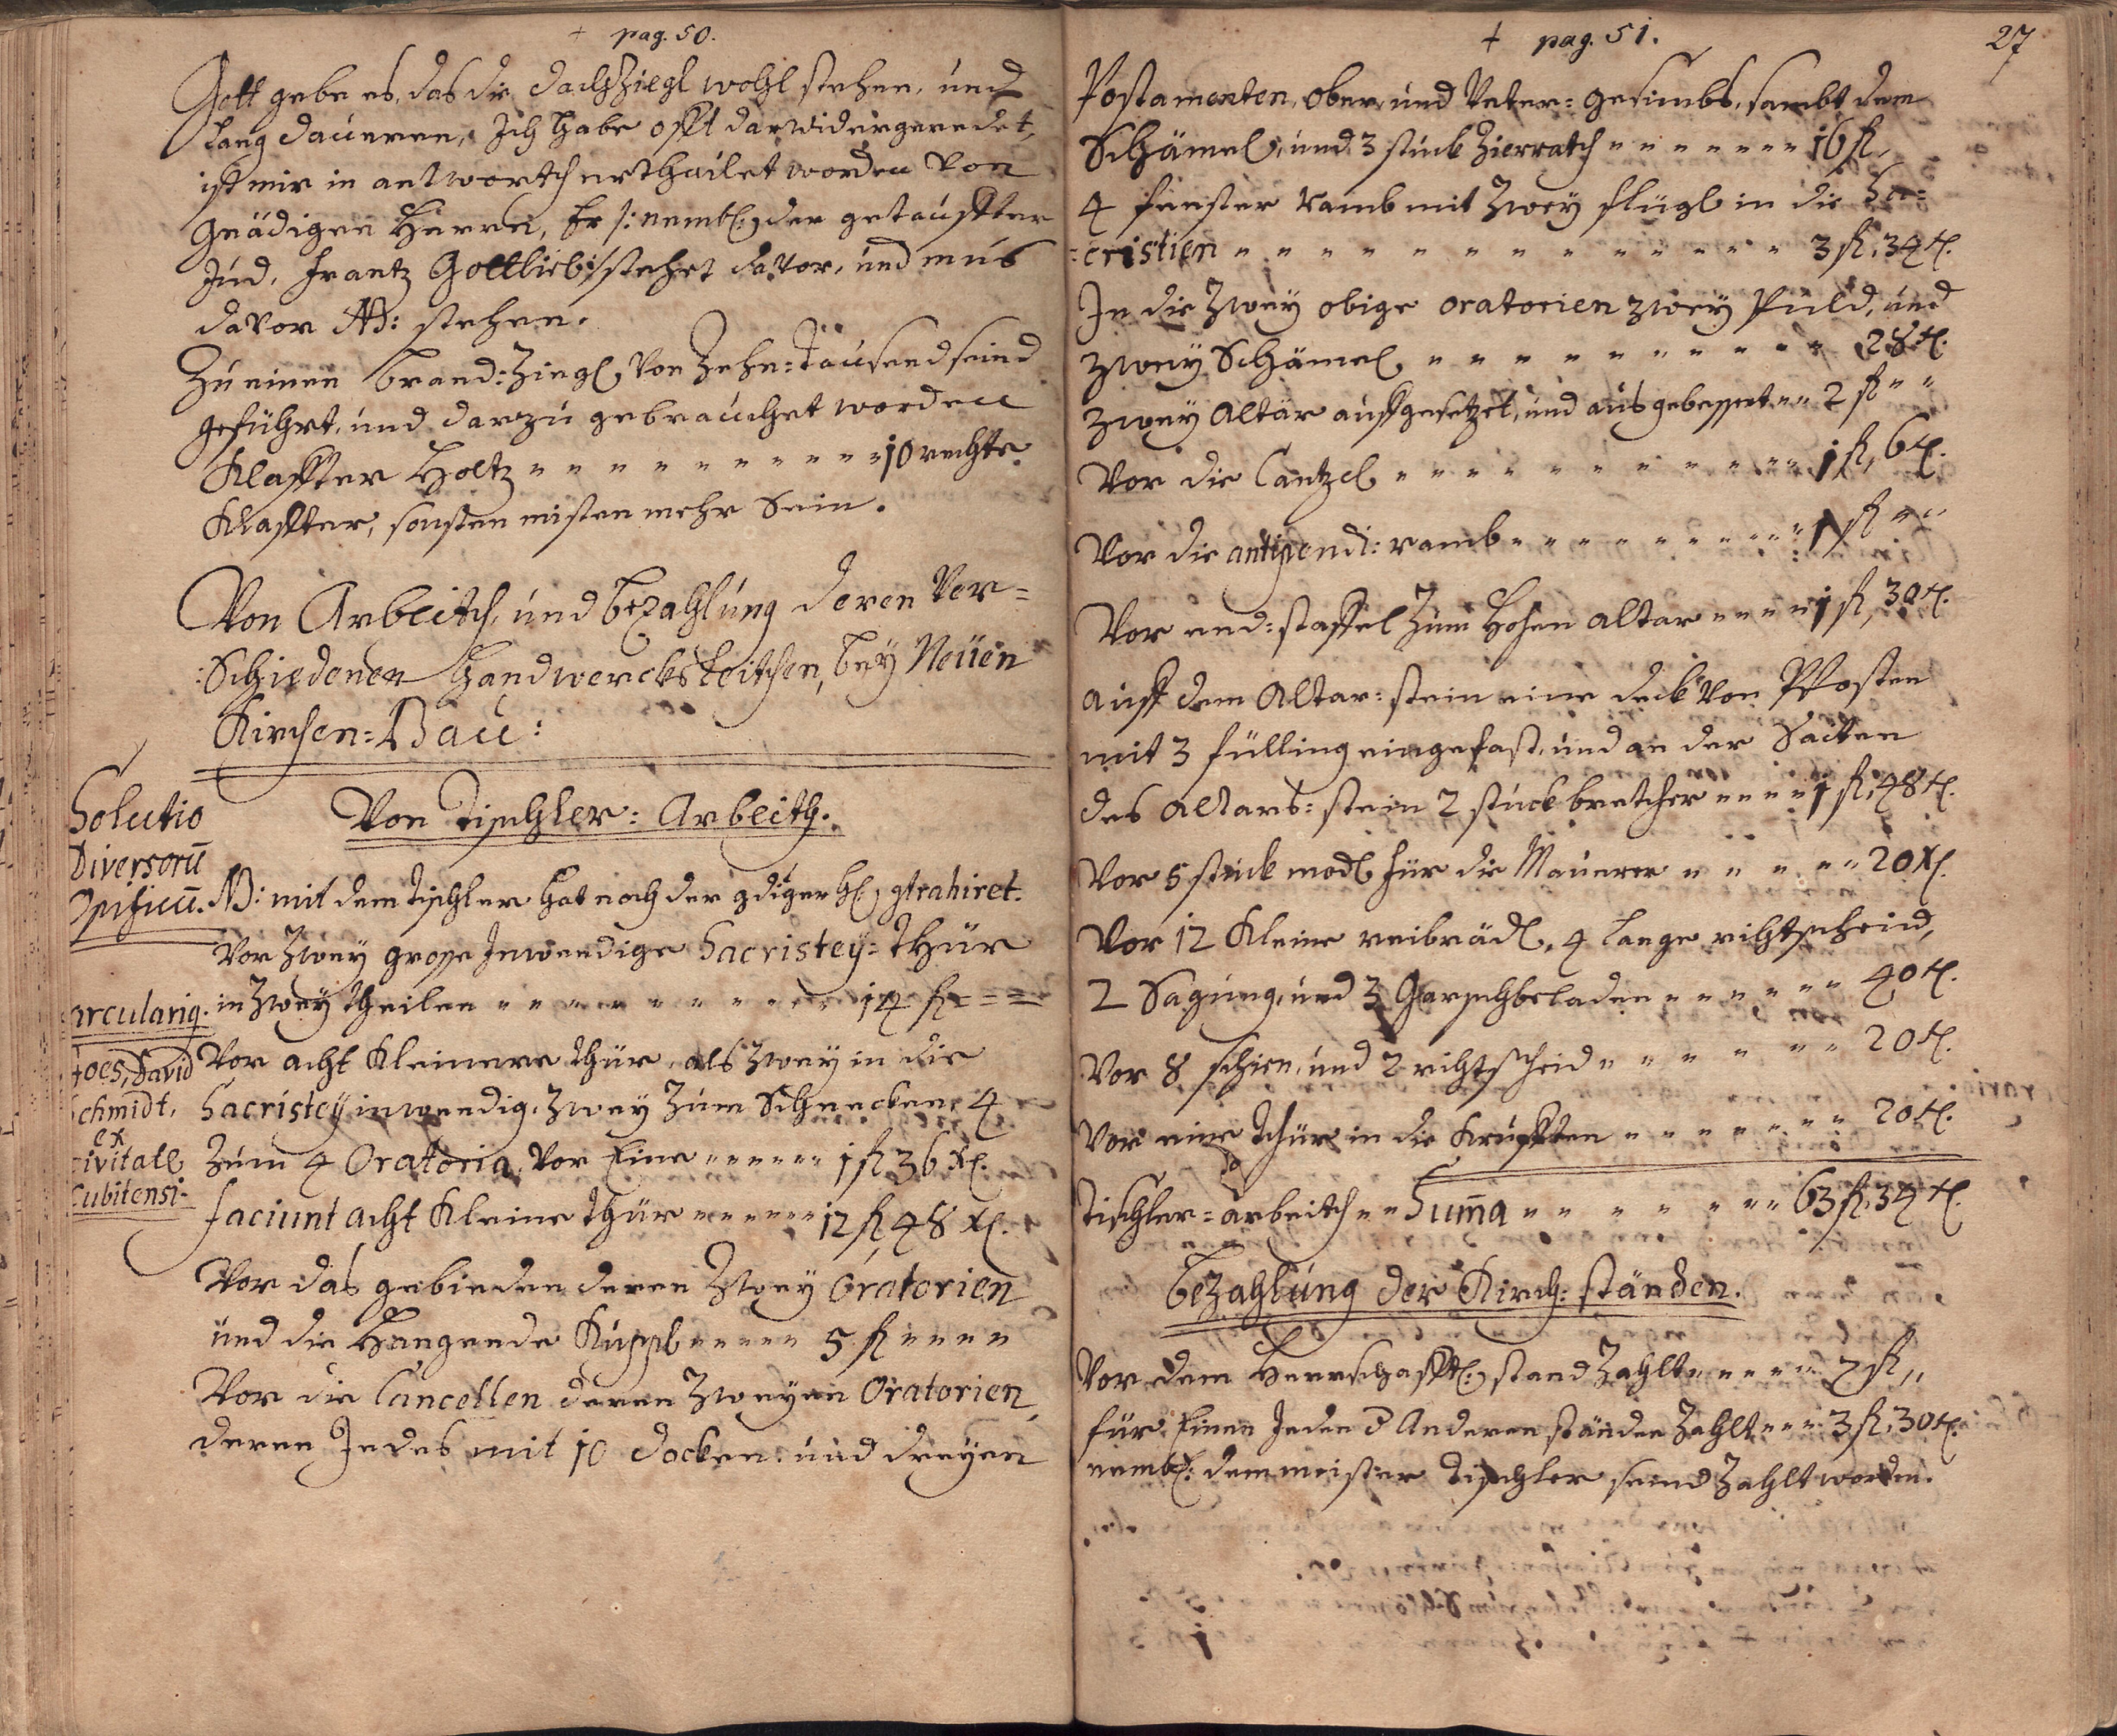 + pag. 50.
Gott gebe es, das die dachZiegl wohl stehen, und
lang daueren, Ich habe offt darwider geredet,
ist mir in antworth ertheilet worden von
Gnädigen Herrn, Er /: nembl: der getauffter
Jud, Frantz Gottlieb :/ stehet davor, und mus
davor NB: stehen.
Zu einen brand: Ziegl von Zehn: tausend seind
geführt, und darzu gebrauchet worden
Klaffter Holtz " " " " " " " " " " " " 10 rechte
Klaffter, sonsten misten mehr sein.
Von Arbeith, und bezahlung deren Ver=
:schiedenen Handwercksleithen, bey Neüen
Kirchen=Bau:
Solutio
Diversorū
Opificū.
Von Tischler: Arbeith.
NB: mit dem Tischler hat noch der gdiger H: gtrahiret.
Vor Zwey grosse Inwendige Sacristey= thür
in Zwey theilen " " " " " " " " " " 14 fl = = =
arculariq.
Joes, David
Schmidt,
ex
civitate
Cubitensi.
Vor acht Kleinere thür, als Zwey in die
Sacristey inwendig, Zwey Zum Schnecken, 4
Zum 4 Oratoria, vor Eine " " " " " " 1 fl 36 x.
faciunt acht Kleine thür " " " " " " 12 fl, 48 x.
Vor das gebinden deren Zwey Oratorien
und die Hangende Kuppl " " " " " 5 fl " " " "
Vor die Cancellen deren Zweyen Oratorien,
deren Jedes mit 10 docken: und dreyen
+ pag. 51.
27
Postamenten, ober, und Unter= gesimbs, sambt dem
Schämel, und 3 stuck Zierrath " " " " " " " " 16 fl,
4 fenster ramb mit Zwey flügl in die Sa=
=cristien " " " " " " " " " " " " " " 3 fl, 34 x.
In die Zwey obige oratorien zwey Puld, und
zwey Schämel " " " " " " " " " " " 28 x.
zwey Altär auffgesetzet, und ausgebessert " " 2 fl " "
Vor die Cantzel " " " " " " " " " " " " 1 fl, 6 x.
Vor die antipendi: ramb " " " " " " " " " " " 1 fl " "
Vor end: staffel Zum Hohen altar " " " " 1 fl, 30 x.
auff dem Altar: stein eine deck von Pfosten
mit 3 fülling eingefast, und an der Saiten
des Altars: stein 2 stuck bretcher " " " " 1 fl, 48 x.
Vor 5 stuck model für die Maurer " " " " " 20 x.
Vor 12 Kleine reibrädl, 4 lange richtscheid,
2 Sagung, und 3 " " " " " " " 40 x.
Vor 8 schien, und 2 richtscheid " " " " " " " 20 x.
Vor eine thür in die Krufften " " " " " " " " 20 x.
Tischler=arbeith " " Suma " " " " " " " " 63 fl, 34 x.
bezahlung der Kirch: ständen.
Vor dem Herrschafftl: stand Zahlt " " " " " 7 fl "
für Einen Jeden d Anderen ständen Zahlt " " " 3 fl, 30 x.
nembl: dem meister Tischler seind Zahlt worden.